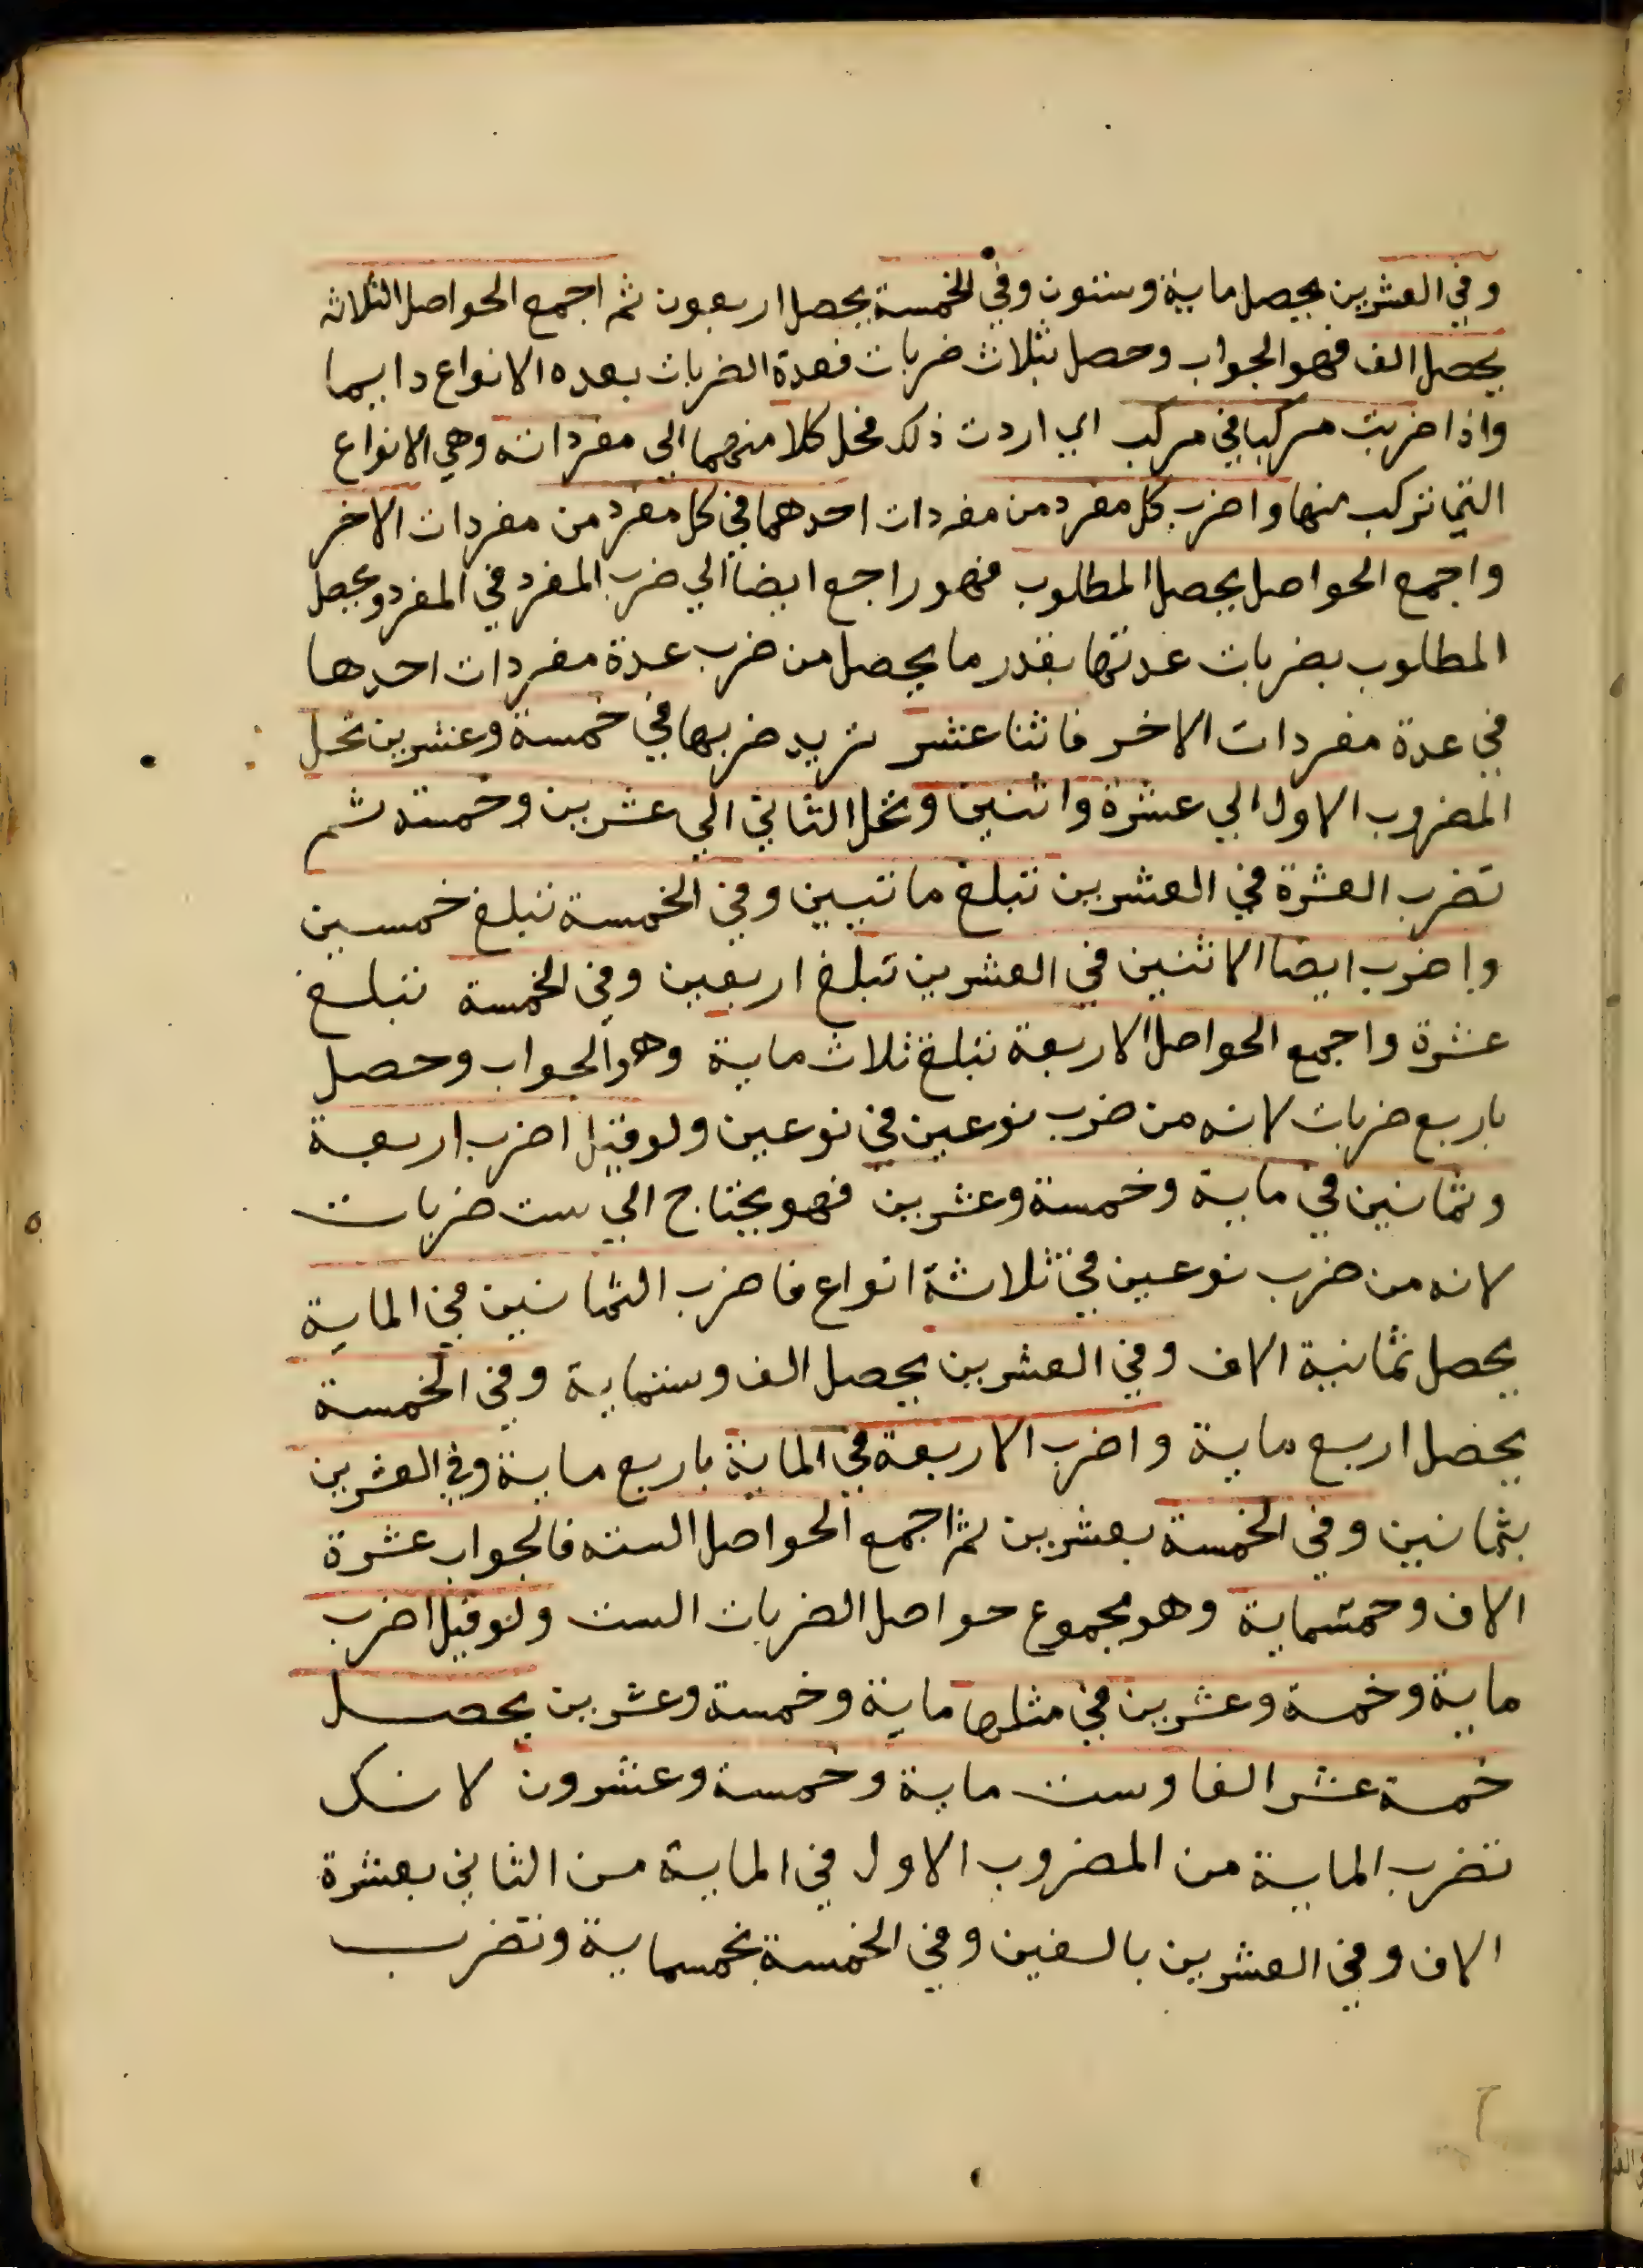 وفي العشرين يحصل ماية وستون وفي الخمسة يحصل اربعون ثم اجمع الحواصل الثلاثه
يحصل الف فهو الجواب وحصل بثلاث ضربات فعدة الضربات بعده الانواع دايما
واذا ضربت مركبا في مركب اي اردت ذلك فحل كلا منهما الي مفرداته وهي الانواع
التي تركب منها واضرب كل مفرد من مفردات احدهما في كل مفرد من مفردات الاخر
واجمع الحواصل يحصل المطلوب فهو راجع ايضا الي ضرب المفرد في المفرد ويحصل
المطلوب بضربات عدتها بقدر ما يحصل من ضرب عدة مفردات احدها
في عدة مفردات الاخر فاثنا عشر نريد ضربها في خمسة وعشرين تحل
المضروب الاول الي عشرة واثنين وتحل الثاني الي عشرين وخمسة ثم
تضرب العشرة في العشرين تبلغ مائتيين وفي الخمسة تبلغ خمسين
واضرب ايضا الاثنين في العشرين تبلغ اربعين وفي الخمسة تبلغ
عشرة واجمع الحواصل الاربعة تبلغ ثلاث ماية وهو الجواب وحصل
باربع ضربات لانه من ضرب نوعين في نوعين ولو قيل اضرب اربعة
وثمانين في ماية وخمسة وعشرين فهو يحتاج الي ست ضربات
لانه من ضرب نوعين في ثلاثة انواع فاضرب الثمانين في الماية
يحصل ثمانية الاف وفي العشرين يحصل الف وستماية وفي الخمسة
يحصل اربع ماية واضرب الاربعة في الماية باربع ماية وفي العشرين
بثمانين وفي الخمسة بعشرين ثم اجمع الحواصل السته فالجواب عشرة
الاف وخمسماية وهو مجموع حواصل الضربات الست ولو قيل اضرب
ماية وخمسة وعشرين في مثلها ماية وخمسة وعشرين يحصل
خمسة عشر الفا وست ماية وخمسة وعشرون لانك
تضرب الماية من المضروب الاول في الماية من الثاني بعشرة
الاف وفي العشرين بالفين وفي الخمسة بخمسماية وتضرب